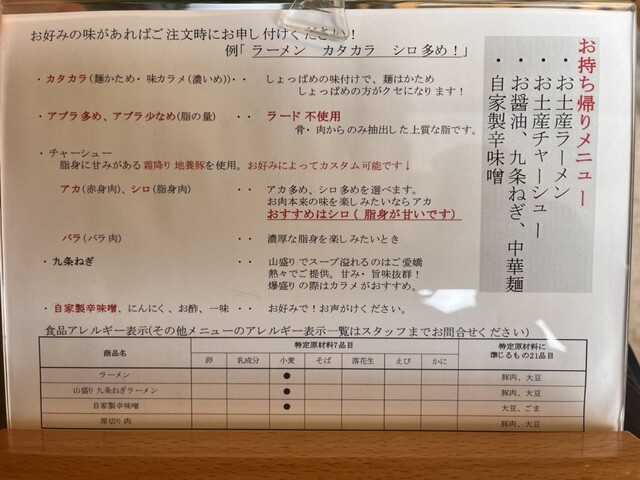 お好みの味があればご注文時にお申し付けください！
例「ラーメン　カタカラ　シロ多め！」
・カタカラ(麺かため・味カラメ(濃いめ))・・　しょっぱめの味付けで、麺はかため
しょっぱめの方がクセになります！
・アブラ多め、アブラ少なめ(脂の量)　・・　ラード不使用
骨・肉からのみ抽出した上質な脂です。
・チャーシュー
脂身に甘みがある霜降り地養豚を使用。お好みによってカスタム可能です↓
アカ(赤身肉)、シロ(脂身肉)　・・　アカ多め、シロ多めを選べます。
お肉本来の味を楽しみたいならアカ
おすすめはシロ(脂身が甘いです)
バラ(バラ肉)　・・　濃厚な脂身を楽しみたいとき
・九条ねぎ　・・　山盛りでスープ溢れるのはご愛嬌
熱々でご提供。甘み・旨味抜群！
爆盛りの際はカラメがおすすめ。
・自家製辛味噌、にんにく、お酢、一味　・・　お好みで！お声がけください。
お持ち帰りメニュー
・お土産ラーメン
・お土産チャーシュー
・お醤油、九条ねぎ、中華麺
・自家製辛味噌
食品アレルギー表示(その他メニューのアレルギー表示一覧はスタッフまでお問合せください)
商品名　特定原材料7品目　特定原材料に準じるもの21品目
卵　乳成分　小麦　そば　落花生　えび　かに
ラーメン　●　豚肉、大豆
山盛り九条ねぎラーメン　●　豚肉、大豆
自家製辛味噌　●　大豆、ごま
厚切り肉　豚肉、大豆